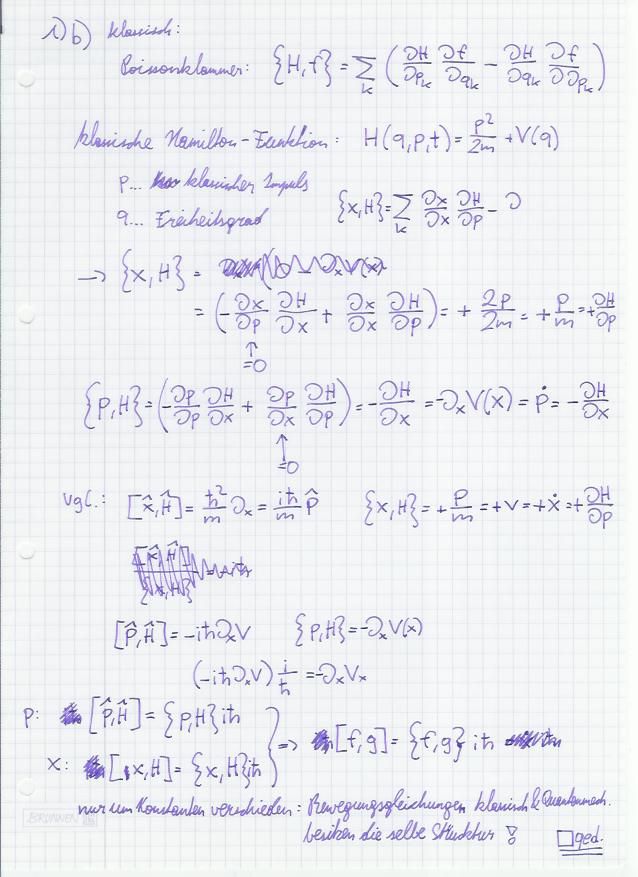 1) b) klassisch:
Poissonklammer: {H,f} = ∑_k ( ∂H/∂p_k ∂f/∂q_k − ∂H/∂q_k ∂f/∂p_k )
klassische Hamilton-Funktion: H(q,p,t) = p²/2m + V(q)
p... klassischer Impuls
q... Freiheitsgrad
{x,H} = ∑_k ∂x/∂x ∂H/∂p − ∂
→ {x,H} =
= ( −∂x/∂p ∂H/∂x + ∂x/∂x ∂H/∂p ) = + 2p/2m = + p/m = + ∂H/∂p
↑
=0
{p,H} = ( −∂p/∂p ∂H/∂x + ∂p/∂x ∂H/∂p ) = −∂H/∂x = −∂ₓV(x) = ṗ = −∂H/∂x
↑
=0
vgl.: [x̂,Ĥ] = ħ²/m ∂ₓ = iħ/m p̂ {x,H} = + p/m = +v = +ẋ = + ∂H/∂p
[p̂,Ĥ] = −iħ∂ₓV {p,H} = −∂ₓV(x)
(−iħ∂ₓV) i/ħ = −∂ₓVₓ
p: [p̂,Ĥ] = {p,H}iħ
⇒ [f,g] = {f,g} iħ
x: [x,H] = {x,H}iħ
nur um Konstanten verschieden: Bewegungsgleichungen klassisch & Quantenmech.
besitzen die selbe Struktur!
□ qed.
BRUNNEN